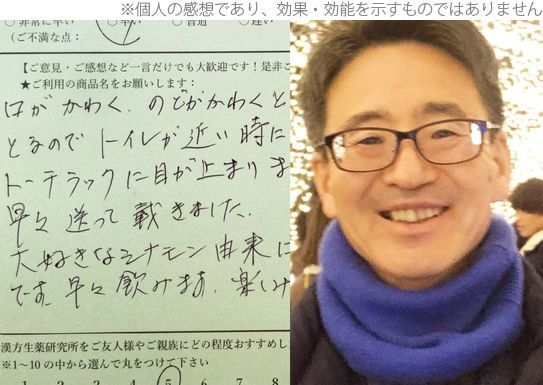 ※個人の感想であり、効果・効能を示すものではありません
○非常に早い ○早い ○普通 ○遅い
(ご不満な点:
【ご意見・ご感想など一言だけでも大歓迎です!是非ご
★ご利用の商品名をお願いします:
口がかわく.のどがかわくと
とるので トイレが近い時に
トーテラックに目が止まりま
早々送って載きました.
大好きなシナモン由来に
です.早々飲みます.楽しみ
漢方生薬研究所をご友人様やご親族にどの程度おすすめし
※1~10の中から選んで丸をつけて下さい
1 2 3 4 5 6 7 8